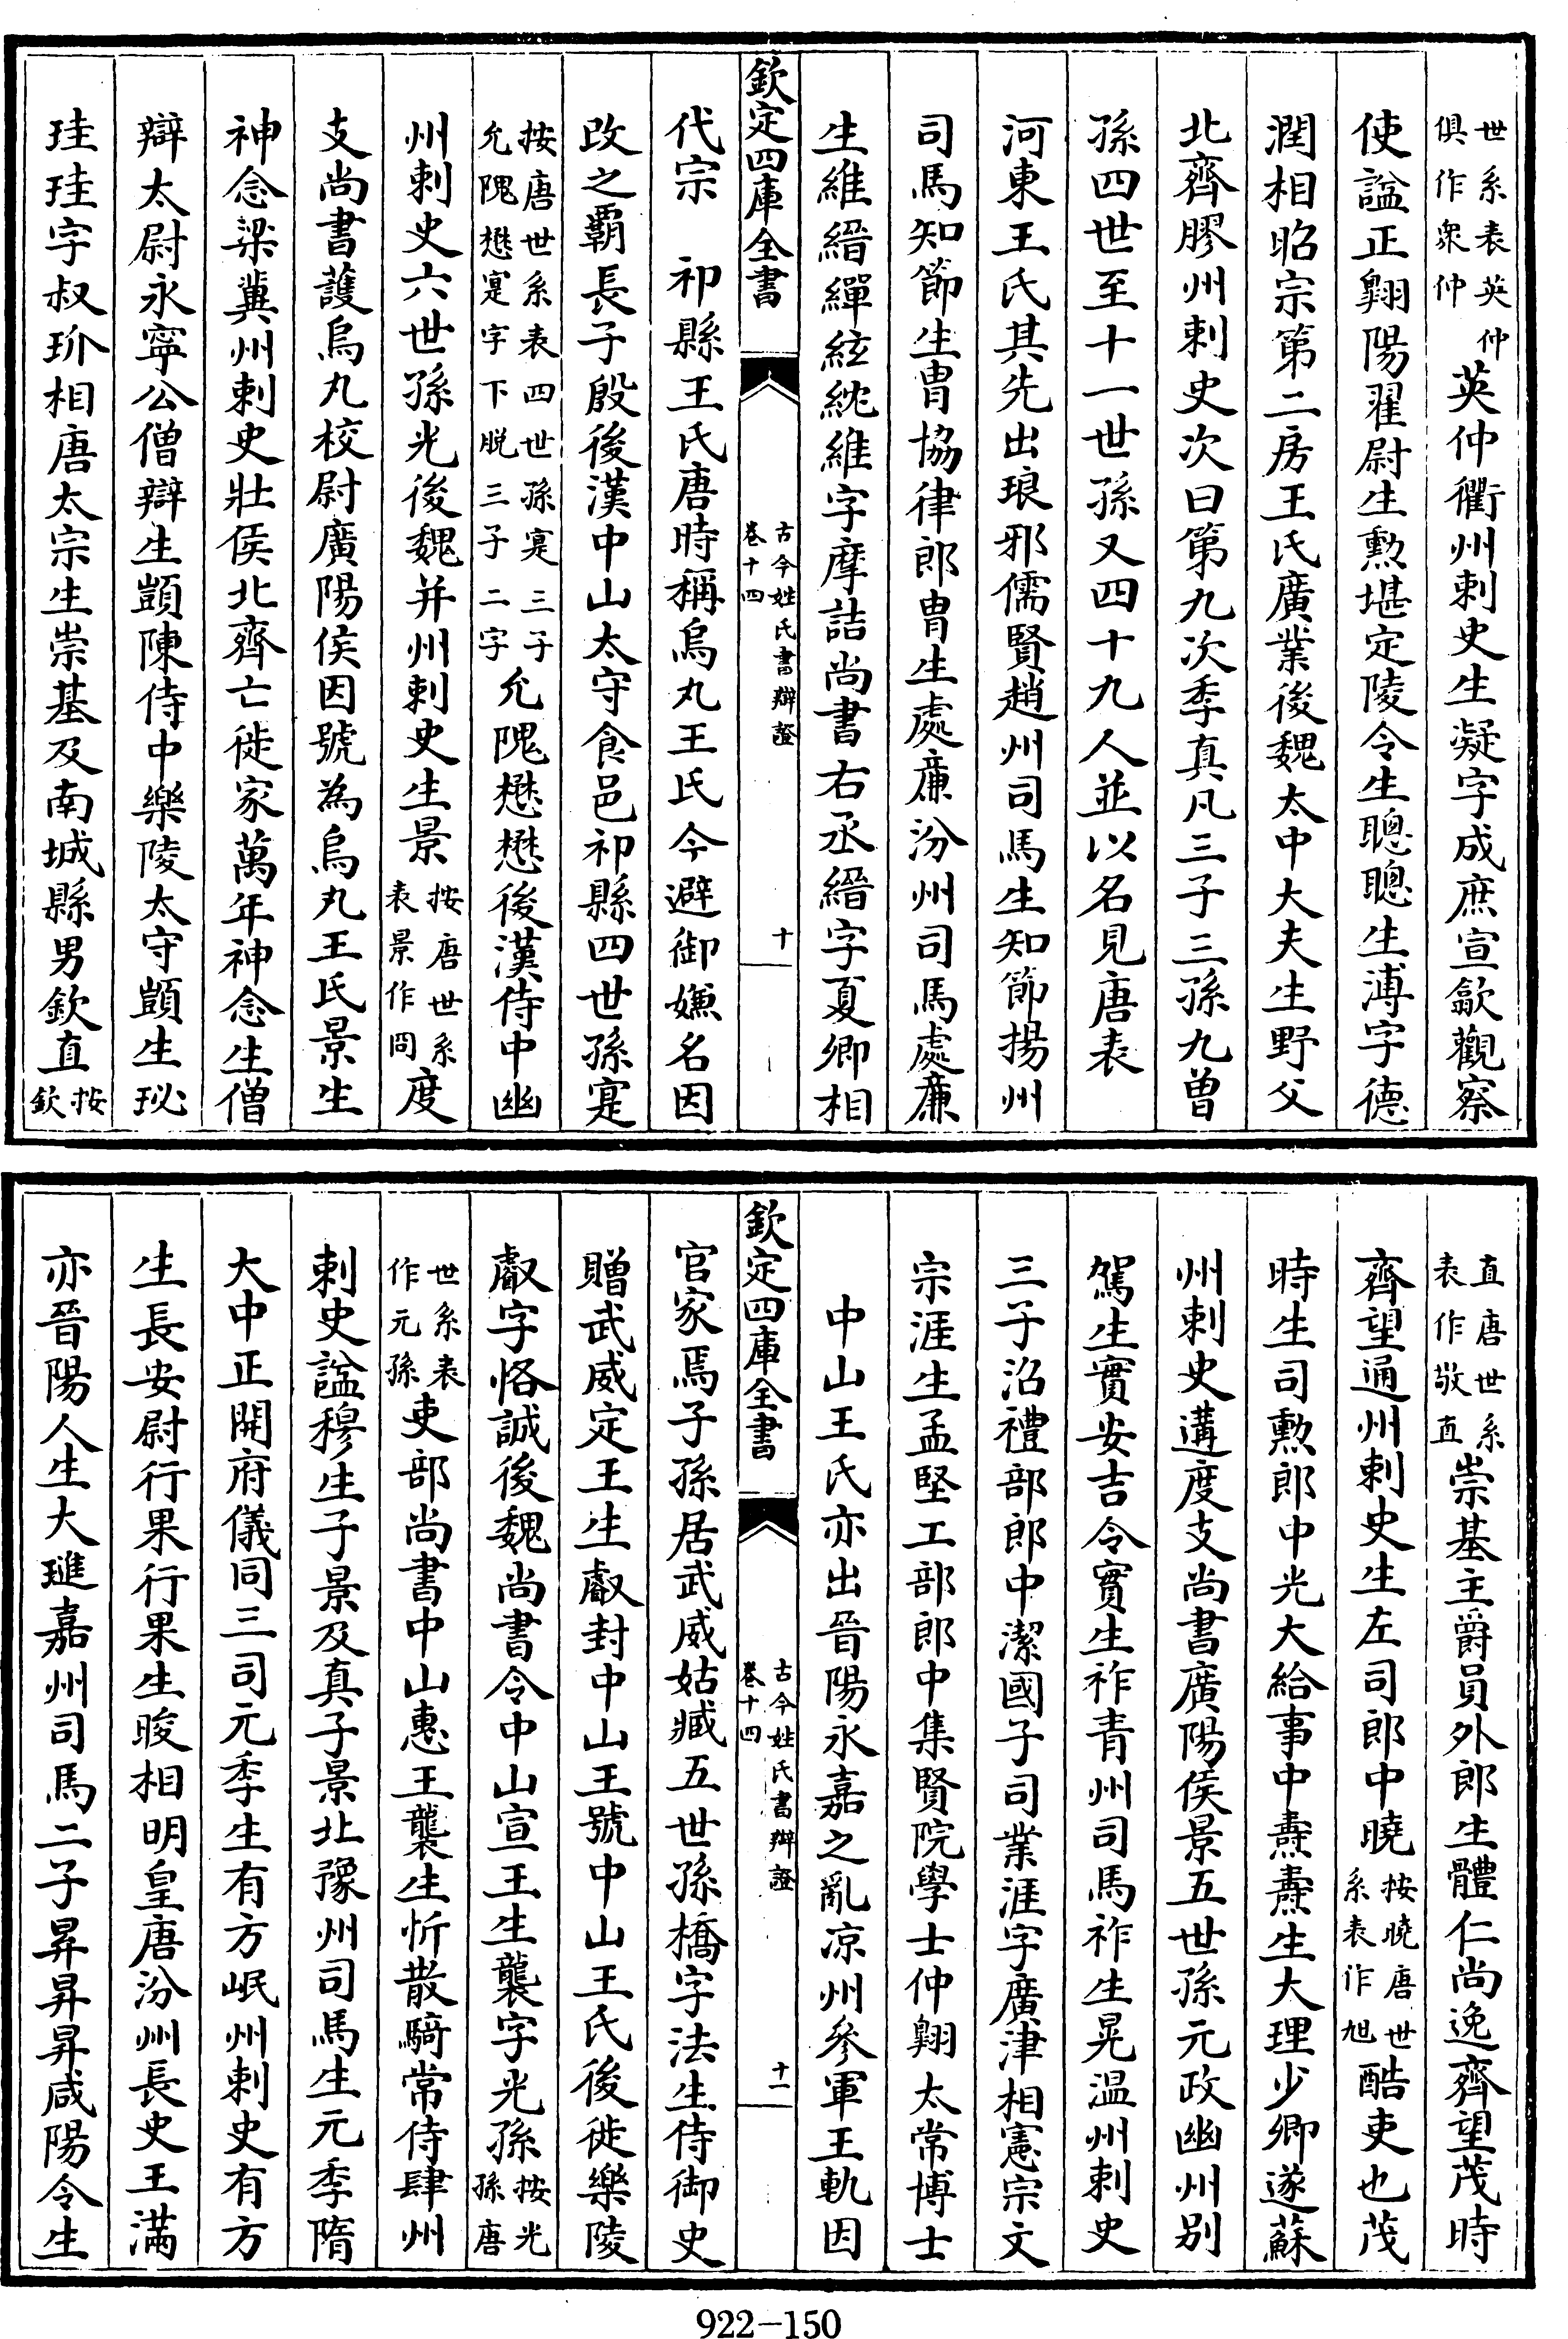 世系表英仲俱作衆仲英仲衢州刺史生凝字成庶宣歙觀察
使諡正翺陽翟尉生勲堪定陵令生聰聰生溥字德
潤相昭宗第二房王氏廣業後魏太中大夫生野父
北齊膠州刺史次曰第九次季真凡三子三孫九曾
孫四世至十一世孫又四十九人並以名見唐表
河東王氏其先出琅邪儒賢趙州司馬生知節揚州
司馬知節生胄協律郎胄生處亷汾州司馬處亷
生維縉繟紘紞維字摩詰尚書右丞縉字夏卿相
代宗　祁縣王氏唐時稱烏丸王氏今避御嫌名因
改之覇長子殷後漢中山太守食邑祁縣四世孫寔
按唐世系表四世孫寔三子允隗懋寔字下脱三子二字允隗懋懋後漢侍中幽
州刺史六世孫光後魏并州刺史生景按唐世系表景作冏度
支尚書護烏丸校尉廣陽侯因號為烏丸王氏景生
神念梁冀州刺史壯侯北齊亡徙家萬年神念生僧
辯太尉永寧公僧辯生顗陳侍中樂陵太守顗生珌
珪珪字叔玠相唐太宗生崇基及南城縣男欽直按欽
欽定四庫全書
古今姓氏書辯證
卷十四
十
直唐世系表作敬直崇基主爵員外郎生體仁尚逸齊望茂時
齊望通州刺史生左司郎中曉按曉唐世系表作旭酷吏也茂
時生司勲郎中光大給事中燾燾生大理少卿遂蘇
州刺史遘度支尚書廣陽侯景五世孫元政幽州别
駕生實安吉令實生祚青州司馬祚生晃温州刺史
三子沼禮部郎中潔國子司業涯字廣津相憲宗文
宗涯生孟堅工部郎中集賢院學士仲翺太常博士
中山王氏亦出晉陽永嘉之亂凉州參軍王軌因
官家焉子孫居武威姑臧五世孫橋字法生侍御史
贈武威定王生叡封中山王號中山王氏後徙樂陵
叡字恪誠後魏尚書令中山宣王生襲字光孫按光孫唐
世系表作元孫吏部尚書中山惠王襲生忻散騎常侍肆州
刺史諡穆生子景及真子景北豫州司馬生元季隋
大中正開府儀同三司元季生有方岷州刺史有方
生長安尉行果行果生晙相明皇唐汾州長史王滿
亦晉陽人生大璡嘉州司馬二子昇昇昇咸陽令生
欽定四庫全書
古今姓氏書辯證
卷十四
十一
922-150